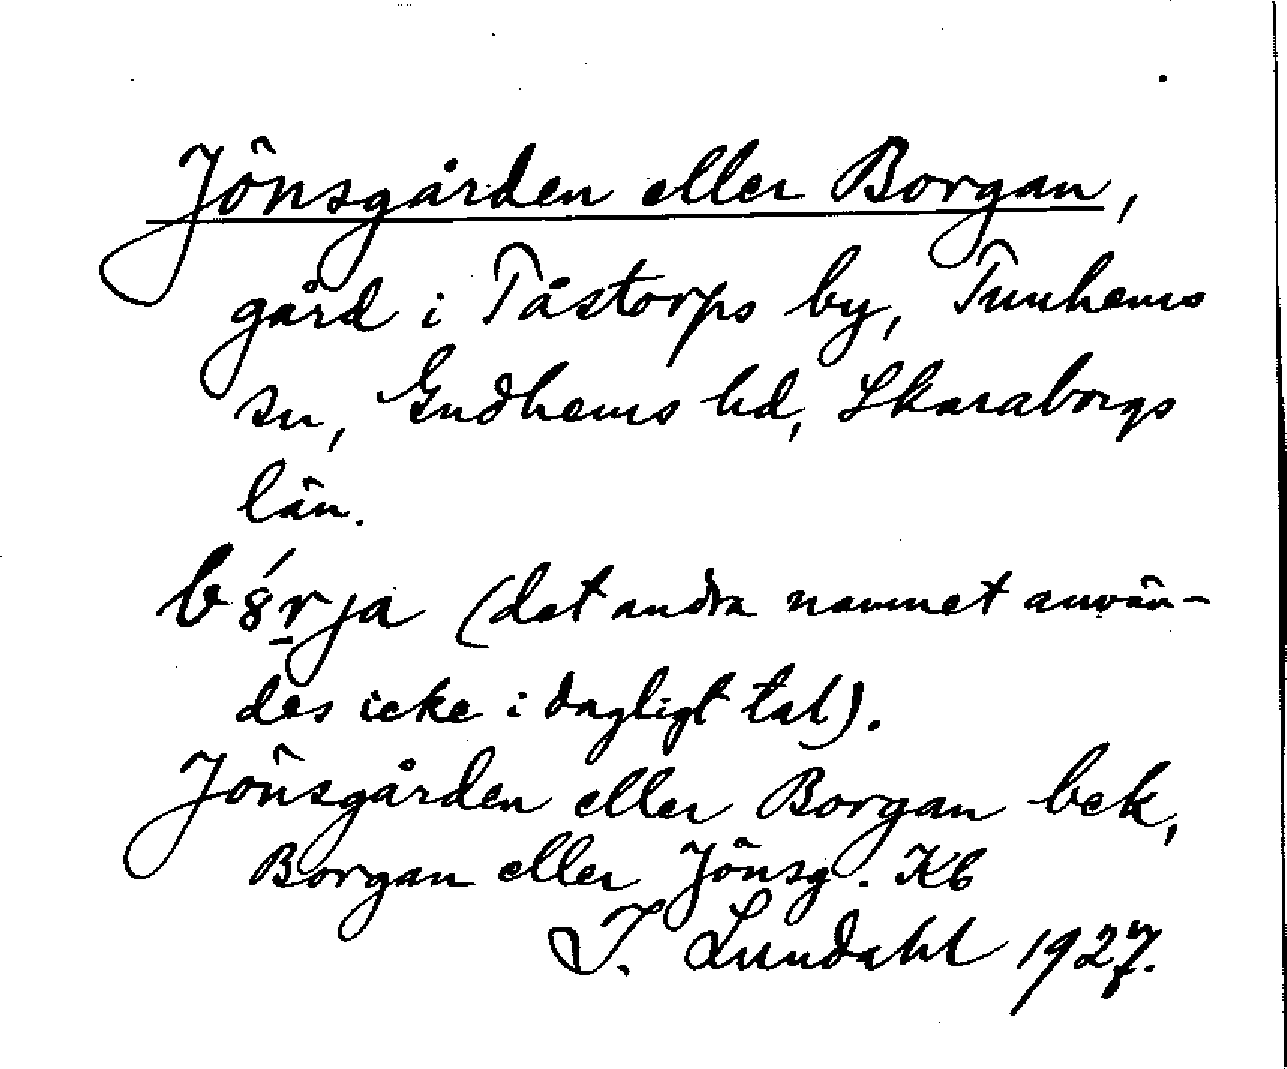 Jönsgården eller Borgan,
gård i Tåstorps by, Tunhems
sn, Gudhems hd, Skaraborgs
län.
b8́r̲ja (det andra namnet använ-
des icke i dagligt tal).
Jönsgården eller Borgan bek,
Borgan eller Jönsg. Kb
I. Lundahl 1927.